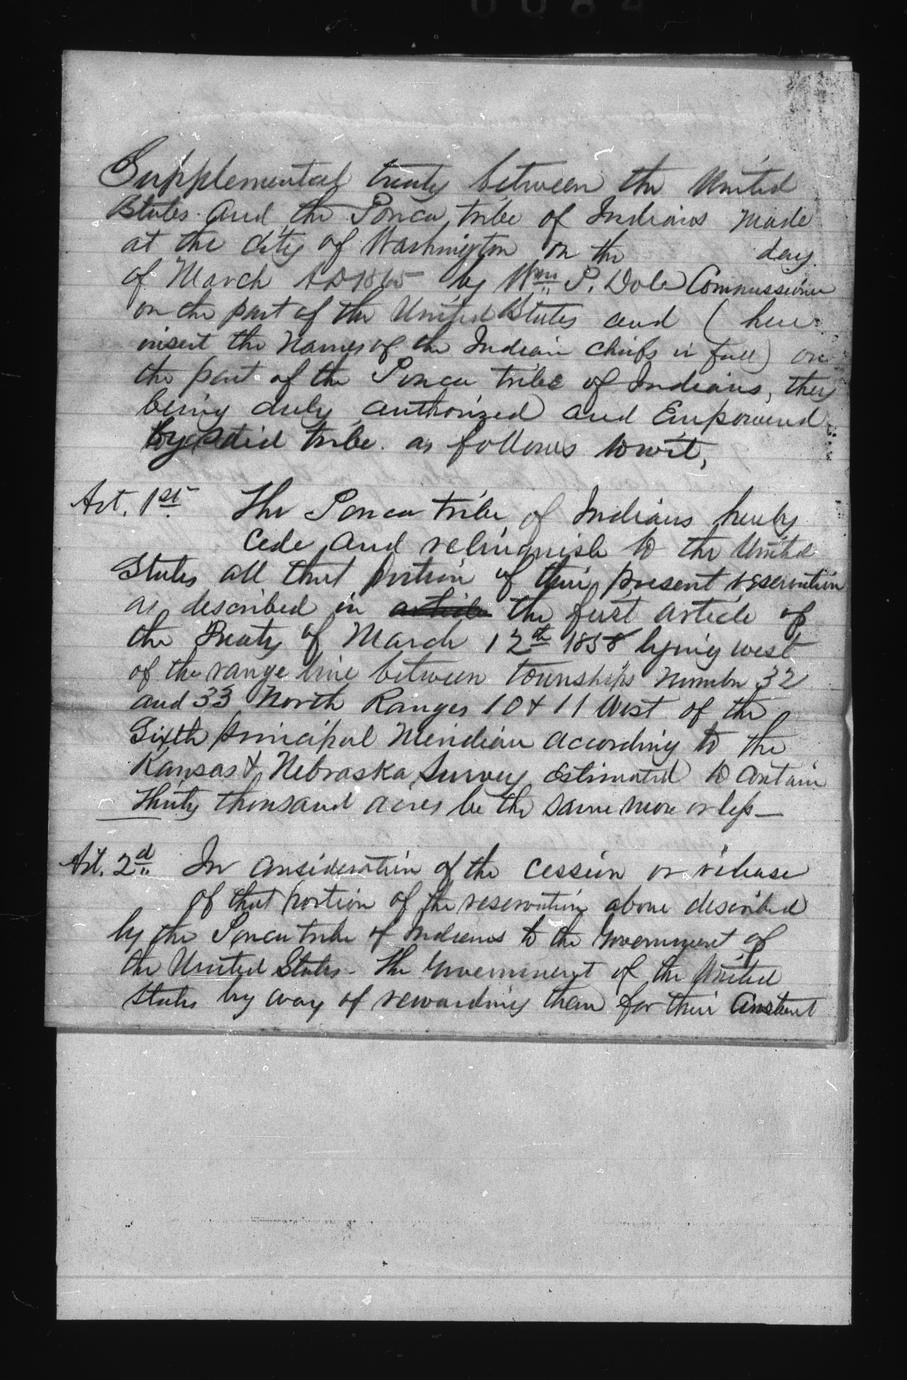 Supplemental treaty between the United
States and the Ponca tribe of Indians made
at the city of Washington on the day
of March AD 1865 by Wm P. Dole Commissioner
on the part of the United States and ( here
insert the Names of the Indian chiefs in full) on
the part of the Ponca tribe of Indians, they
being duly authorized and Empowered
by said tribe. as follows to wit,
Art. 1st The Ponca tribe of Indians hereby
cede and relinquish to the United
States all that portion of their present reservation
as described in article the first article of
the Treaty of March 12th 1858 lying west
of the range line between townships number 32
and 33 North Ranges 10 & 11 West of the
Sixth principal Meridian according to the
Kansas & Nebraska Survey estimated to contain
Thirty thousand acres be the same more or less—
Art. 2d In consideration of the cession or release
of that portion of the reservation above described
by the Ponca tribe of Indians to the Government of
the United States - The Government of the United
States by way of rewarding them for their constant